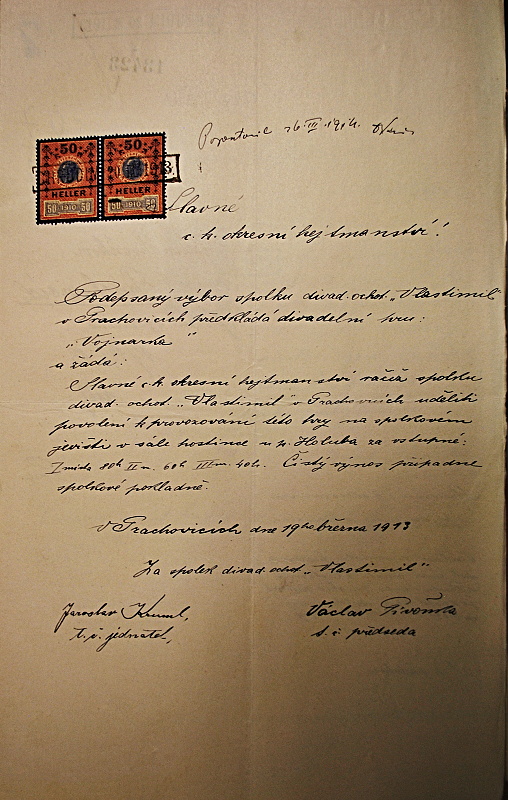 26. III. 1914.
50 50
HELLER HELLER
50 1910 50 50 1910 50
Slavné
c. k. okresní hejtmanství!
Podepsaný výbor spolku divad. ochot. „Vlastimil"
v Prachovicích předkládá divadelní hru:
„Vojnarka"
a žádá:
Slavné c. k. okresní hejtmanství račiž spolku
divad. ochot. „Vlastimil" v Prachovicích uděliti
povolení k provozování této hry na spolkovém
jevišti v sále hostince u p. Holuba za vstupné:
I místo 80h II m. 60h III m. 40h. Čistý výnos připadne
spolkové pokladně.
V Prachovicích dne 19ho března 1913
Za spolek divad. ochot. „Vlastimil"
Jaroslav
t. č. jednatel,
Václav Pivoňka
t. č. předseda